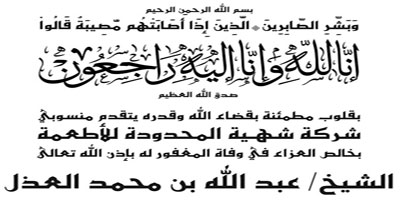 بسم الله الرحمن الرحيم
وَبَشِّرِ الصَّابِرِينَ * الَّذِينَ إِذَا أَصَابَتْهُم مُّصِيبَةٌ قَالُواْ
إِنَّا لِلَّهِ وَإِنَّا إِلَيْهِ رَاجِعُونَ
صدق الله العظيم
بقلوب مطمئنة بقضاء الله وقدره يتقدم منسوبي
شركة شهية المحدودة للأطعمة
بخالص العزاء في وفاة المغفور له بإذن الله تعالى
الشيخ/ عبد الله بن محمد العذل